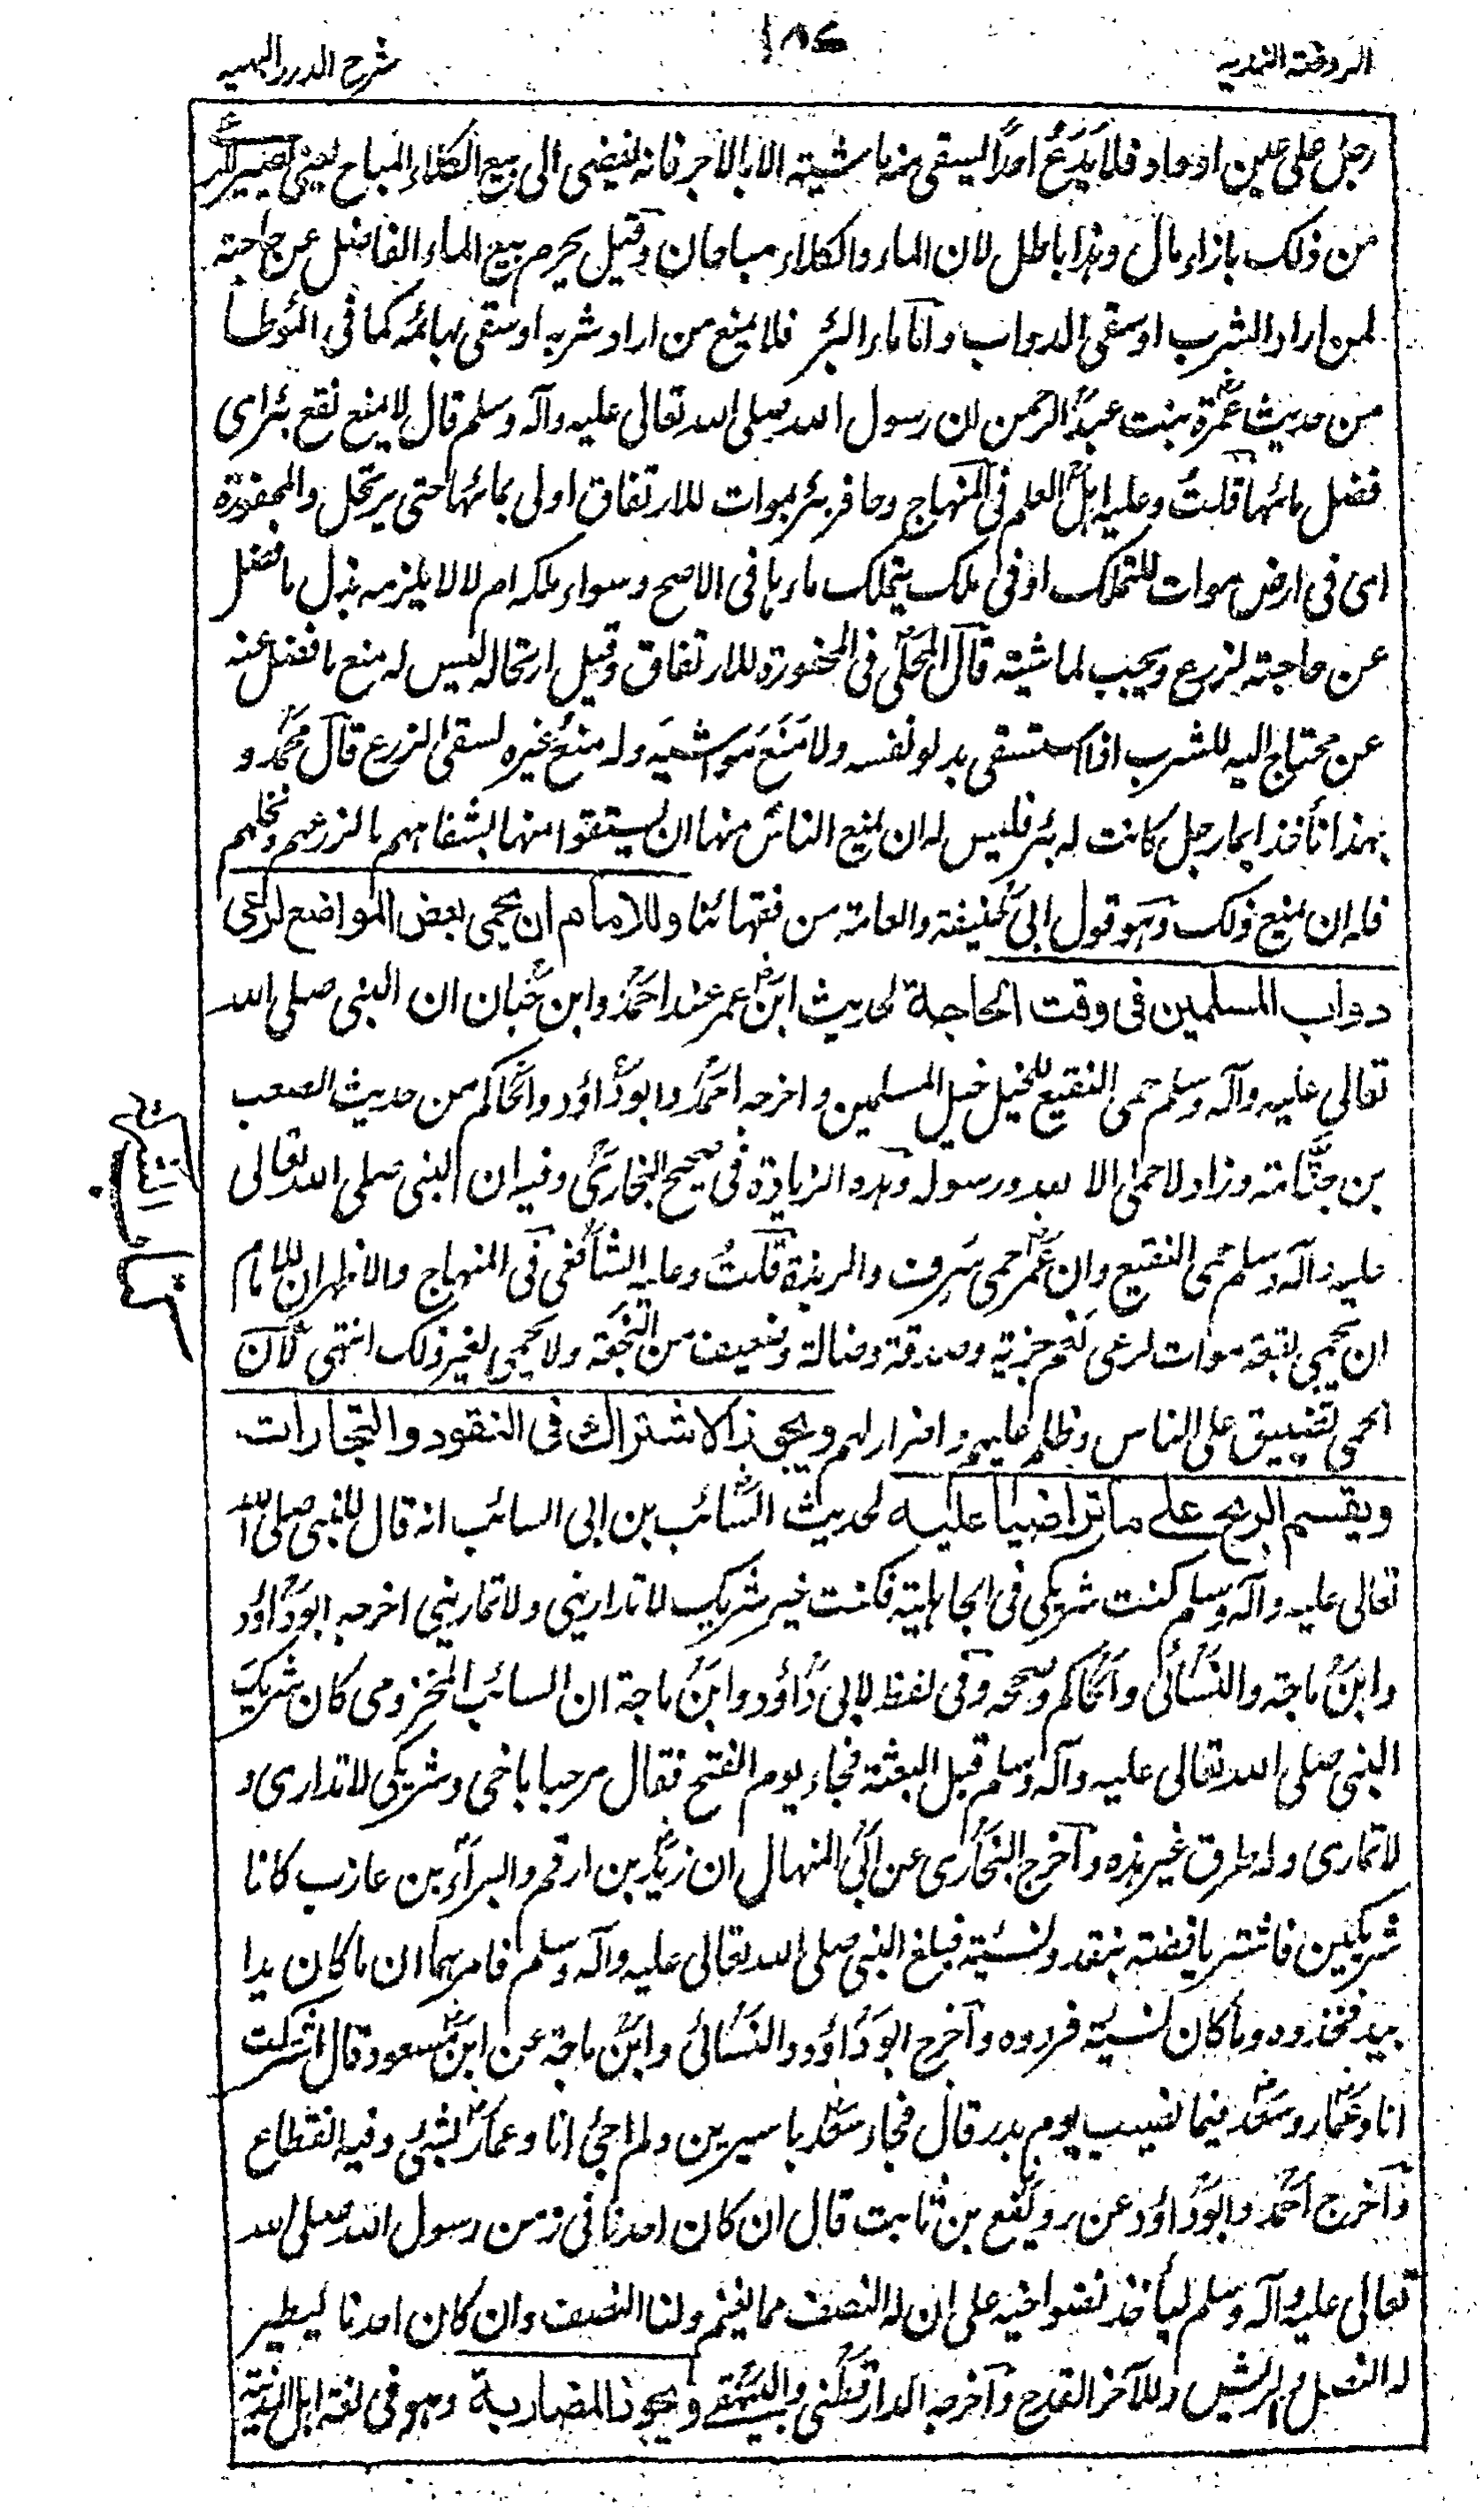 الروضة الندية
١٨٧
شرح الدرر البهية
رجل على عين او واد فلا يدع احدا ليسقى منه ماشيته الا بالاجر فانه يفضى الى بيع الكلاء المباح يعنى يصير لاكر
من ذلك بازاء مال وهذا باطل لان الماء والكلاء مباحان وقيل يحرم بيع الماء الفاضل عن حاجته
لمن اراد الشرب او سقى الدواب واما ماء البئر فلا يمنع من اراد شربه او سقى بهائمه كما فى المؤطا
من حديث عمرة بنت عبد الرحمن ان رسول الله صلى الله تعالى عليه وآله وسلم قال لا يمنع نقع بئر اى
فضل مائها قلت وعليه اهل العلم فى المنهاج وحافر بئر بموات للارتفاق اولى بمائها حتى يرتحل والمحفورة
اى فى ارض موات للتملك او فى ملك يتملك ماءها فى الاصح وسواء ملكه ام لا لا يلزمه بذل ما فضل
عن حاجته لزرع ويجب لماشية قال المحلى فى المحفورة للارتفاق وقبل ارتحاله ليس له منع ما فضل عنه
عن محتاج اليه للشرب اذا استسقى بدلو نفسه ولا منع مواشيه وله منع غيره لسقى الزرع قال محمد و
بهذا ناخذ ايما رجل كانت له بئر فليس له ان يمنع الناس منها ان يستقوا منها لشفاههم ما لزرعهم ونخلهم
فله ان يمنع ذلك وهو قول ابى حنيفة والعامة من فقهائنا وللامام ان يحمى بعض المواضع لرعى
دواب المسلمين فى وقت الحاجة لحديث ابن عمر عند احمد وابن حبان ان النبى صلى الله
تعالى عليه وآله وسلم حمى النقيع للخيل خيل المسلمين واخرجه احمد وابو داؤد والحاكم من حديث الصعب
بن جثامة وزاد لا حمى الا لله ورسوله وهذه الزيادة فى صحيح البخارى وفيه ان النبى صلى الله تعالى
عليه وآله وسلم حمى النقيع وان عمر حمى سرف والربذة قلت وعليه الشافعى فى المنهاج والاظهر ان للامام
ان يحمى بقعة موات لرعى نعم جزية وصدقة وضالة وضعيف عن النجعة ولا يحمى لغير ذلك انتهى لان
الحمى تضييق على الناس وظلم عليهم واضرار لهم ويجوز الاشتراك فى النقود والتجارات
ويقسم الربح على ما تراضيا عليه لحديث السائب بن ابى السائب انه قال للنبى صلى الله
تعالى عليه وآله وسلم كنت شريكى فى الجاهلية فكنت خير شريك لا تدارينى ولا تمارينى اخرجه ابو داؤد
وابن ماجة والنسائى والحاكم وصححه وفى لفظ لابى داؤد وابن ماجة ان السائب المخزومى كان شريك
النبى صلى الله تعالى عليه وآله وسلم قبل البعثة فجاء يوم الفتح فقال مرحبا باخى وشريكى لا تدارى و
لا تمارى وله طرق غير هذه واخرج البخارى عن ابى المنهال ان زيد بن ارقم والبراء بن عازب كانا
شريكين فاشتريا فضة بنقد ونسيئة فبلغ النبى صلى الله تعالى عليه وآله وسلم فامرهما ان ما كان يدا
بيد فخذوه وما كان نسيئة فردوه واخرج ابو داؤد والنسائى وابن ماجة عن ابن مسعود قال اشتركت
انا وعمار وسعد فيما نصيب يوم بدر قال فجاء سعد باسيرين ولم اجئ انا وعمار بشئ وفيه انقطاع
واخرج احمد وابو داؤد عن رويفع بن ثابت قال ان كان احدنا فى زمن رسول الله صلى الله
تعالى عليه وآله وسلم ليأخذ نضو اخيه على ان له النصف مما يغنم ولنا النصف وان كان احدنا ليطير
له النصل والريش وللآخر القدح واخرجه الدارقطنى والبيهقى ويجوز المضاربة وهو فى لغة اهل المدينة